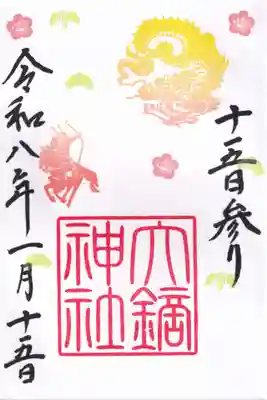 十五日参り
六鏑
神社
令和八年一月十五日